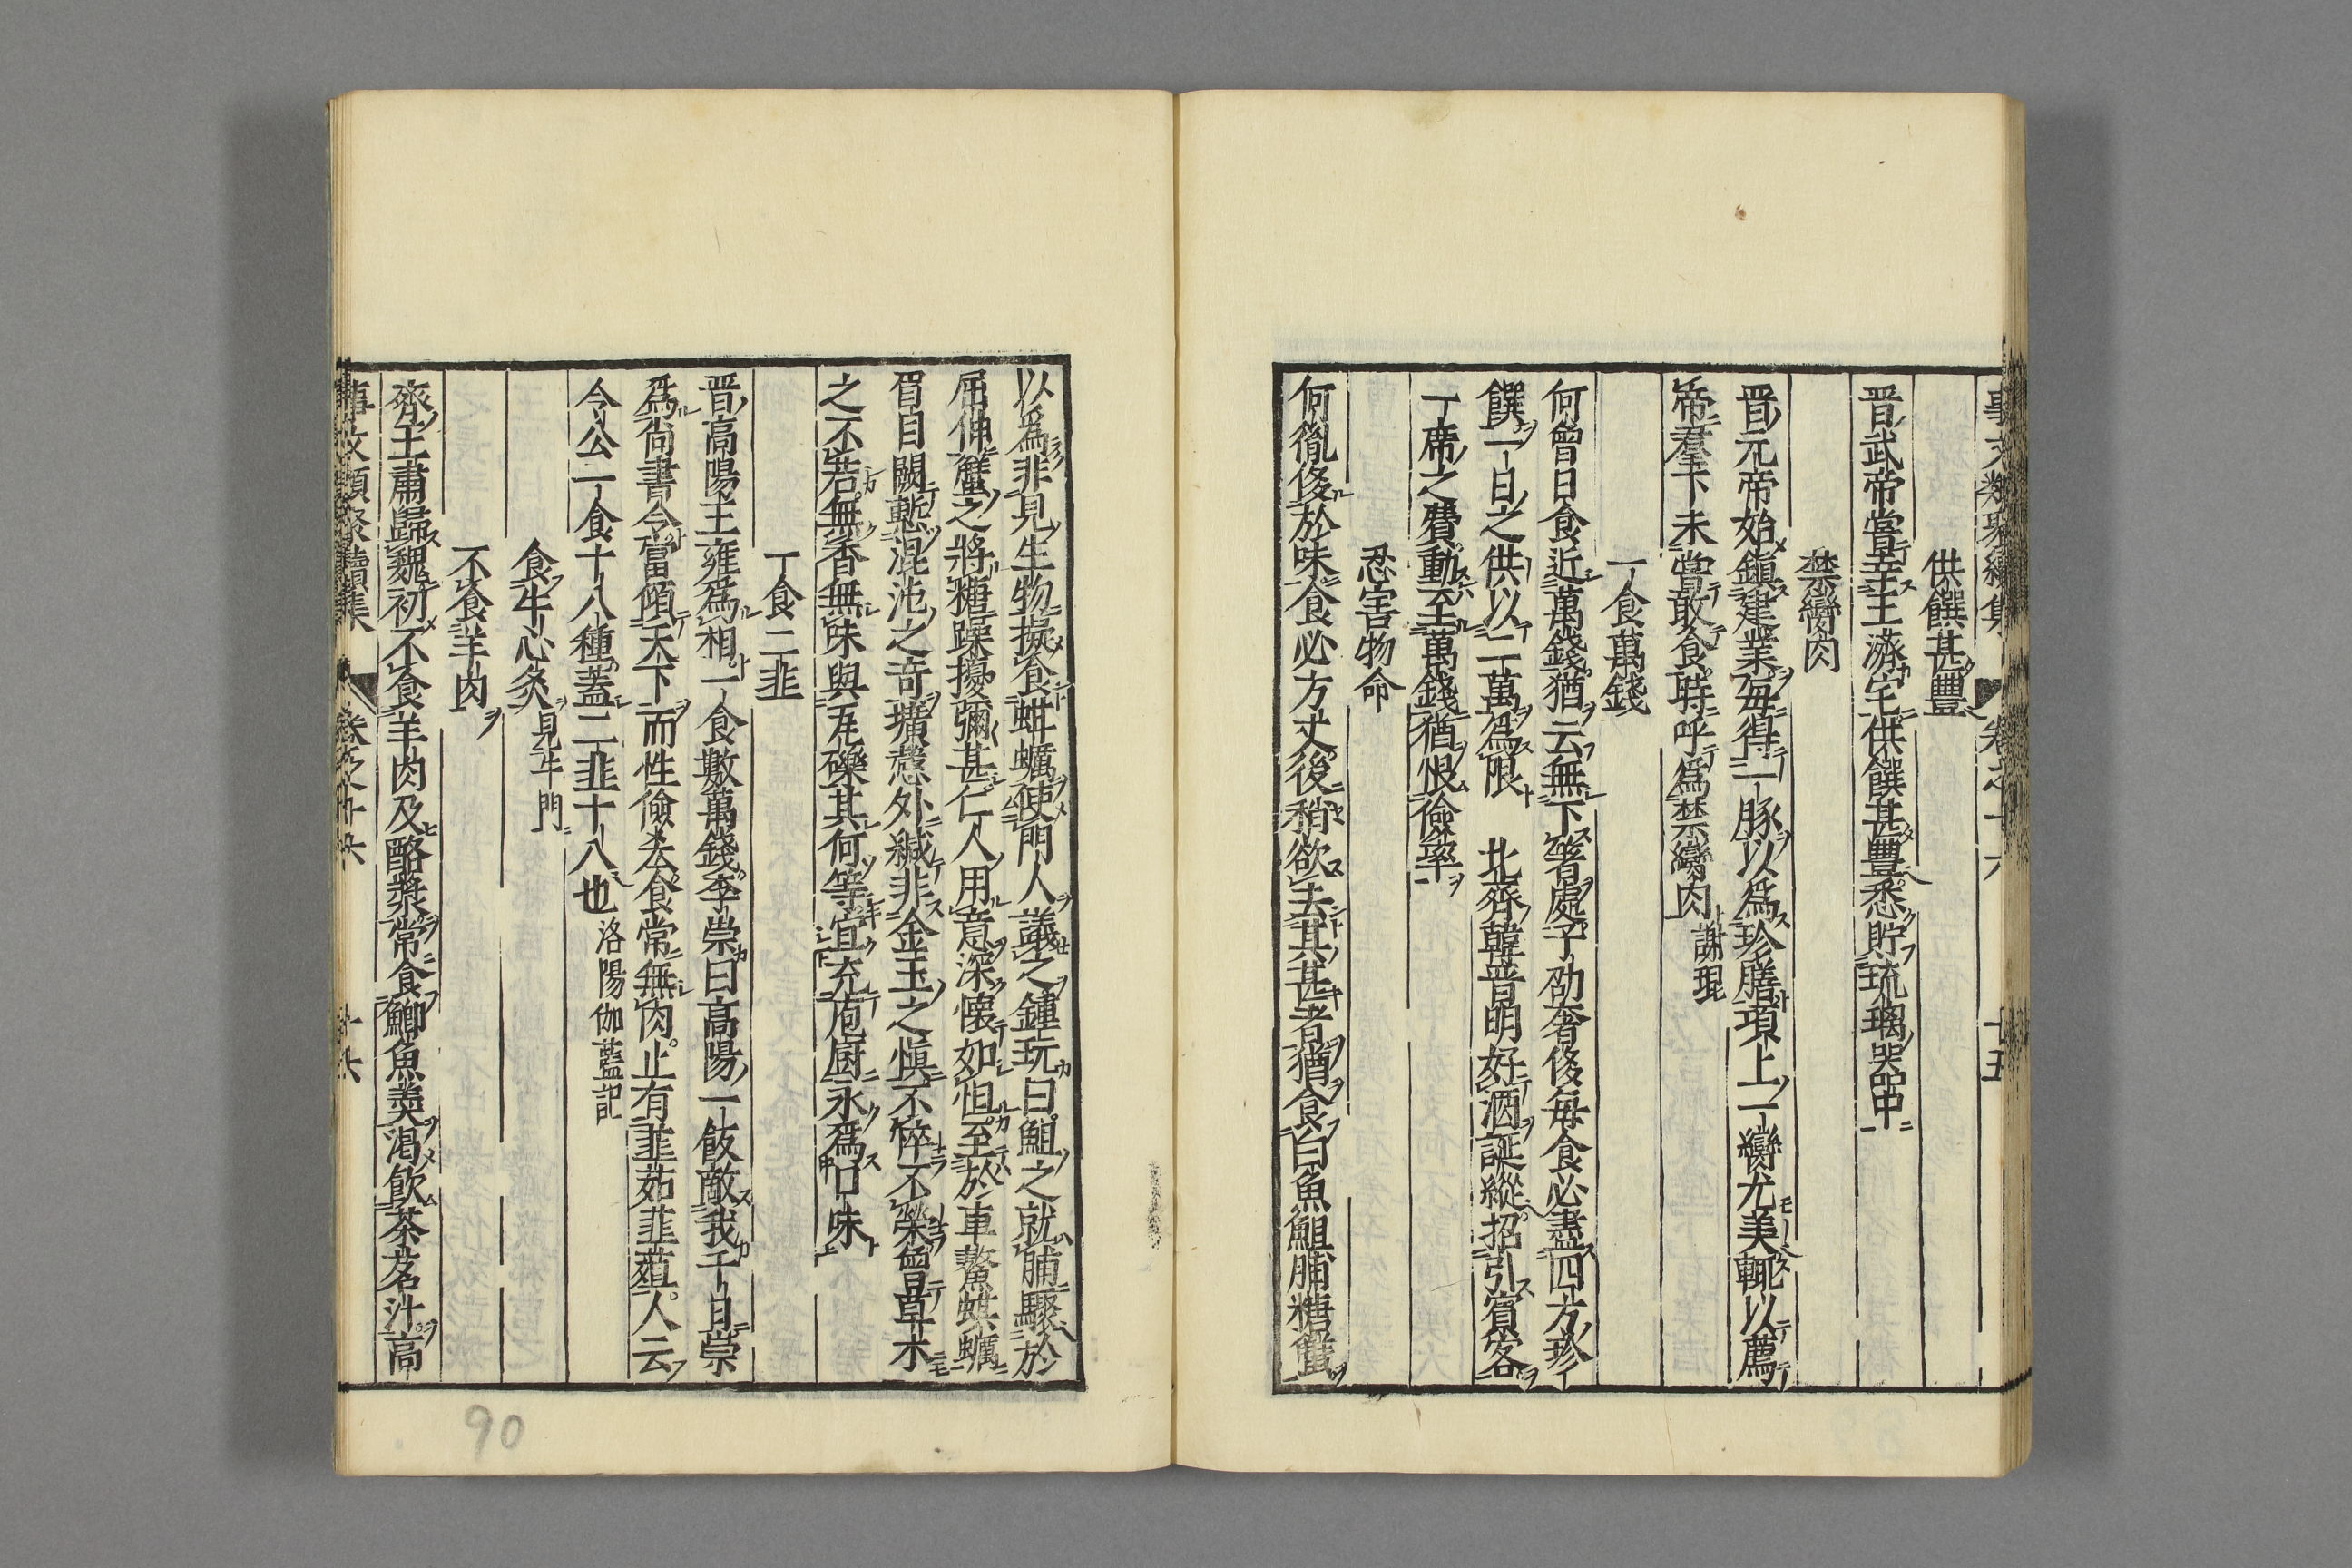 供饌甚豐
晋武帝嘗幸王濟宅供饌甚豐悉貯琉璃器中
禁臠肉
晋元帝始鎮建業每得一豚以爲珍膳項上一臠尤美輙以薦
帝羣下未嘗敢食時呼爲禁臠肉謝琨
一食萬錢
何曾日食近萬錢猶云無下箸處子劭奢侈每食必盡四方珍
饌一日之供以二萬爲限 北齊韓晋明好酒誕縱招引賓客
一席之費動至萬錢猶恨儉率
忍害物命
何胤侈於味食必方丈後稍欲去其甚者猶食白魚䱉脯糖蟹
以爲非見生物擬食蚶蠣使門人議之鍾玩曰䱉之就脯驟於
屈伸蟹之將糖躁擾彌甚仁人用意深懷如怛至於車螯蚶蠣
眉目闕慙混沌之奇壙慧外緘非金玉之慎不悴不榮曾草木
之不若無香無味與瓦礫其何等宜充庖厨永爲口味
一食二韭
晋高陽王雍爲相一食數萬錢李崇曰高陽一飯敵我千日崇
爲尚書令富傾天下而性儉素食常無肉止有韮茹韮葅人云
今公一食十八種蓋二韭十八也洛陽伽藍記
食牛心炙見牛門
不食羊肉
齊王肅歸魏初不食羊肉及酪漿常食鯽魚羮渇飲茶茗汁高
事文類聚續集 卷之十六